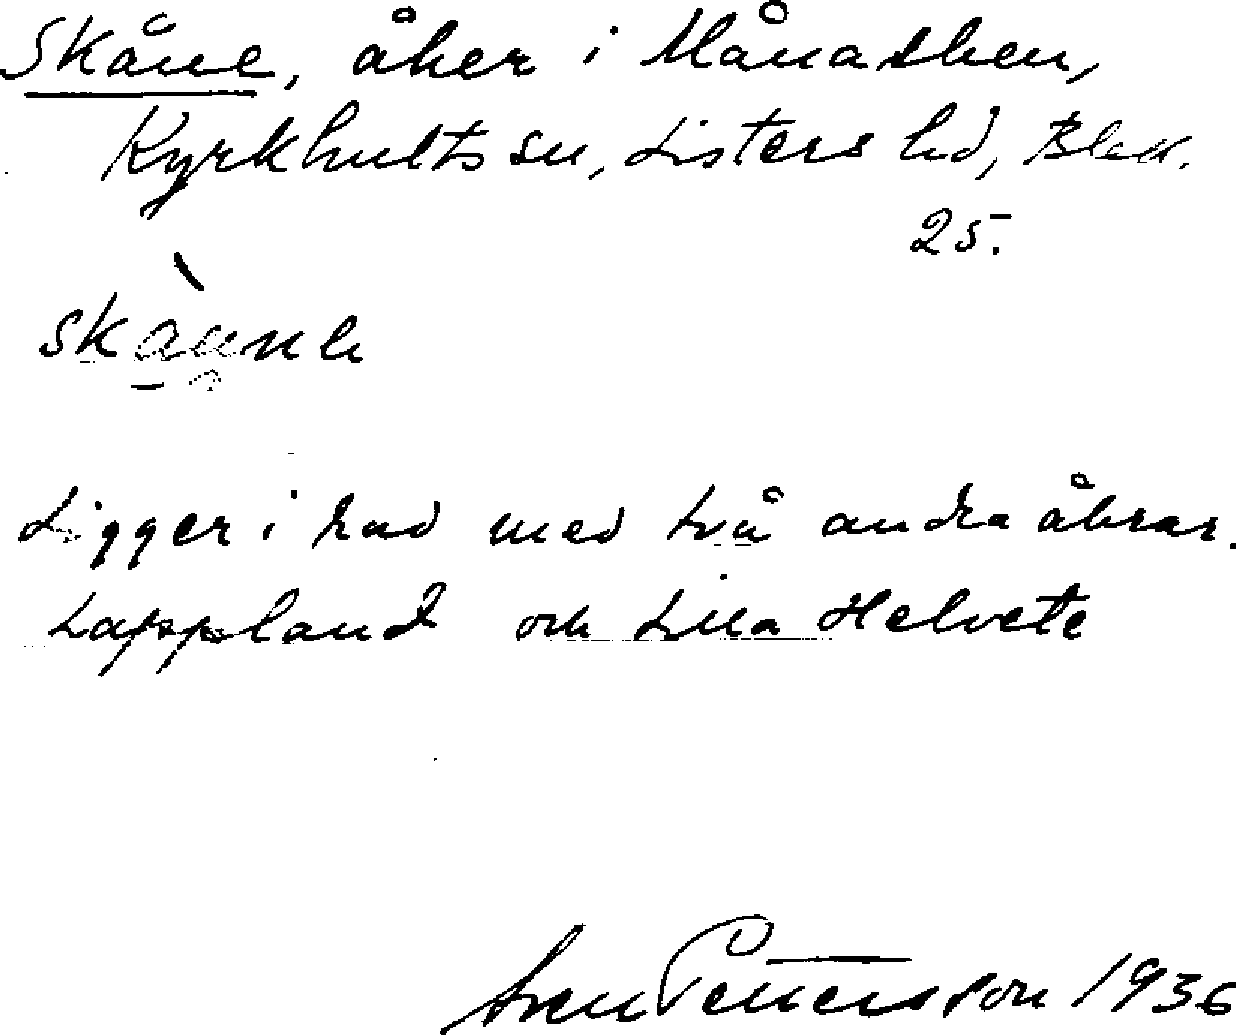 Skåne, åker i Månasken,
Kyrkhults sn, Listers hd, Blek.
25.
skàunh
Ligger i rad med två andra åkrar.
Lappland och Lilla Helvete
Sven Pettersson 1936